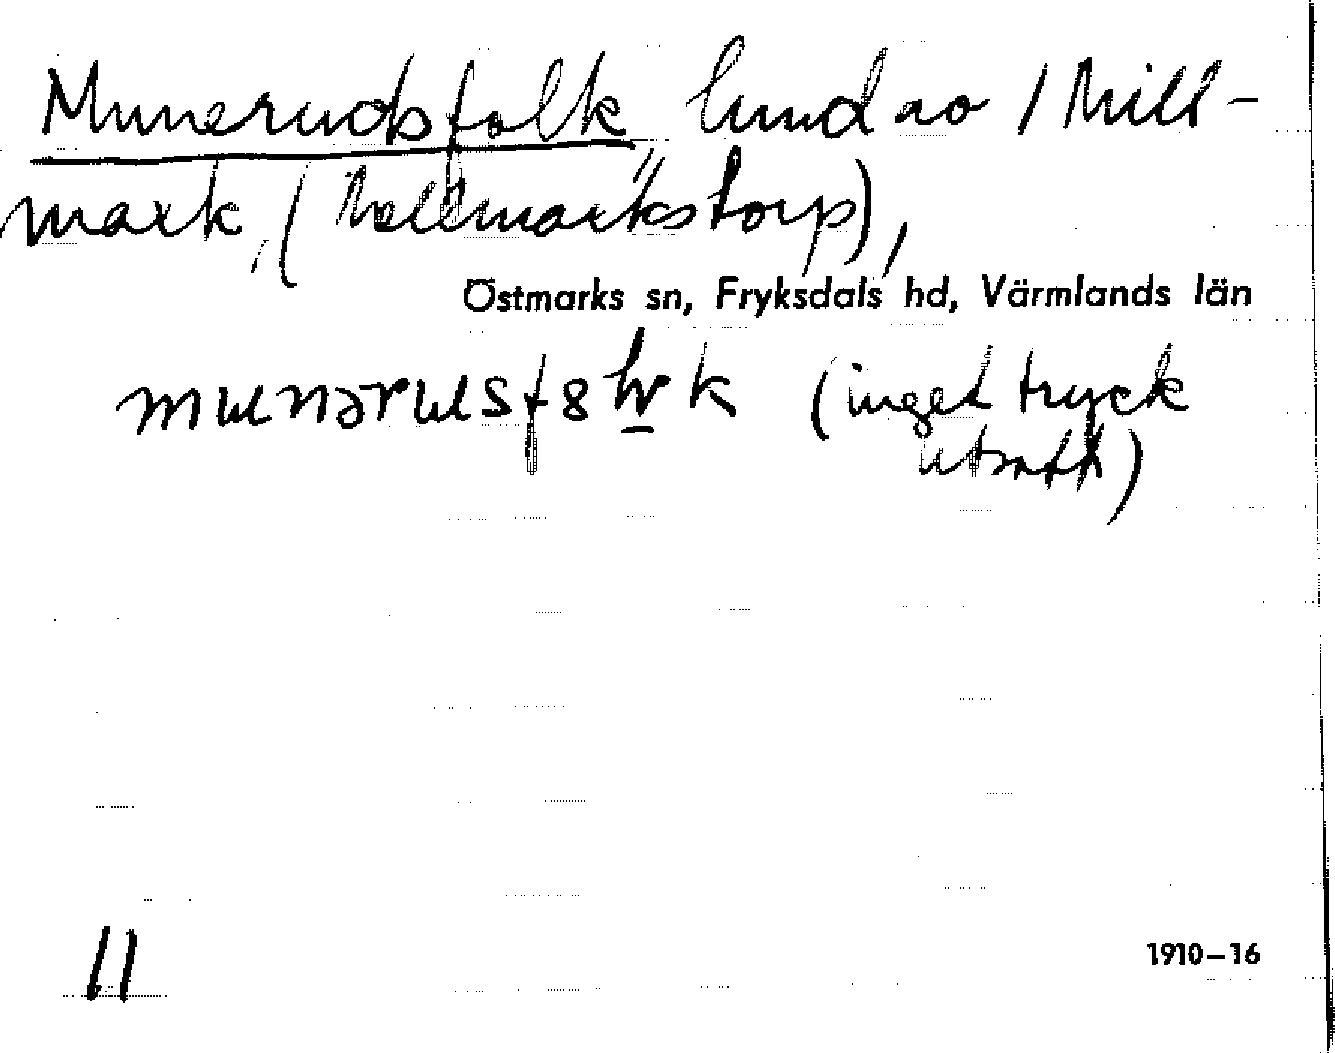 Munerudsfolk hund ao / Mill-
mark, (Mellmarkstorp),
Östmarks sn, Fryksdals hd, Värmlands län
(inget tryck
utsatt)
11
1910–16